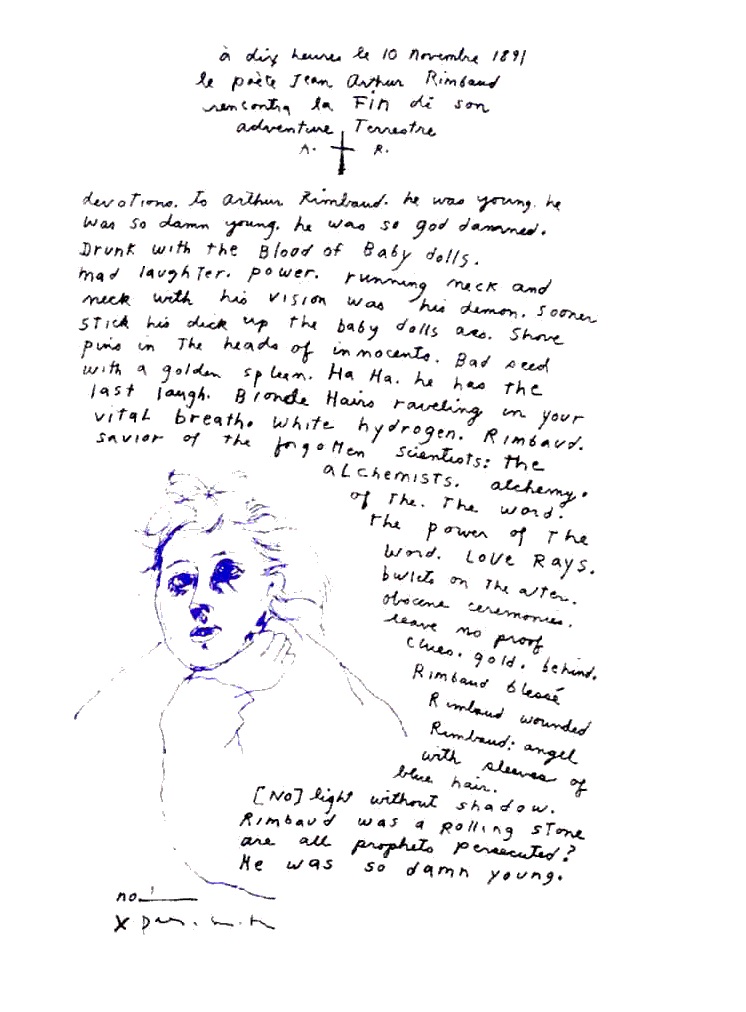 à dix heures le 10 novembre 1891
le poète Jean Arthur Rimbaud
rencontra la Fin de son
adventure Terrestre
A. R.
devotions. to arthur Rimbaud. he was young. he
was so damn young. he was so god damned.
Drunk with the Blood of Baby dolls.
mad laughter. power. running neck and
neck with his vision was his demon. sooner
stick his dick up the baby dolls ass. Shove
pins in the heads of innocents. Bad seed
with a golden spleen. Ha Ha. he has the
last laugh. Blonde Hairs raveling in your
vital breath. white hydrogen. Rimbaud.
savior of the forgotten scientists: the
alchemists. alchemy.
of The. The word.
the power of The
word. LOVE RAYS.
bullets on The alter.
obscene ceremonies.
leave no proof
clues. gold. behind.
Rimbaud blessé
Rimbaud wounded
Rimbaud: angel
with sleeves of
blue hair.
[NO] light without shadow.
Rimbaud was a Rolling Stone
are all prophets persecuted?
He was so damn young.
no. 1
X